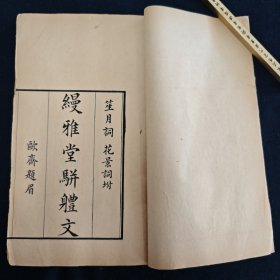 笙月詞 花景詞坿
縵雅堂駢體文
歐齋題眉